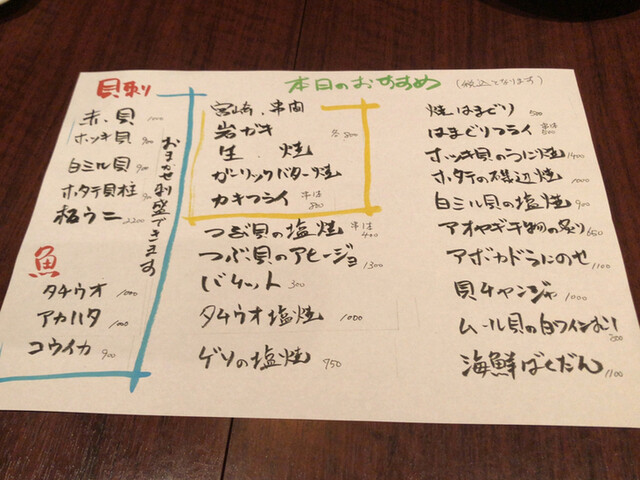 貝刺
赤貝 1000
ホッキ貝 900
白ミル貝 900
ホタテ貝柱 900
板ウニ 2200
おまかせ刺盛できます
魚
タチウオ 1000
アカハタ 1000
コウイカ 900
本日のおすすめ (税込となります)
宮崎、串間
岩ガキ 各800
生 焼
ガーリックバター焼
カキフライ 800
つぶ貝の塩焼 400
つぶ貝のアヒージョ 1300
バケット 300
タチウオ塩焼 1000
ゲソの塩焼 950
焼はまぐり 500
はまぐりフライ
ホッキ貝のうに焼 1400
ホタテの磯辺焼 1000
白ミル貝の塩焼 900
アオヤギ干物の炙り 650
アボカドうにのせ 1100
貝チャンジャ 1000
ムール貝の白ワインむし
海鮮ばくだん 1100